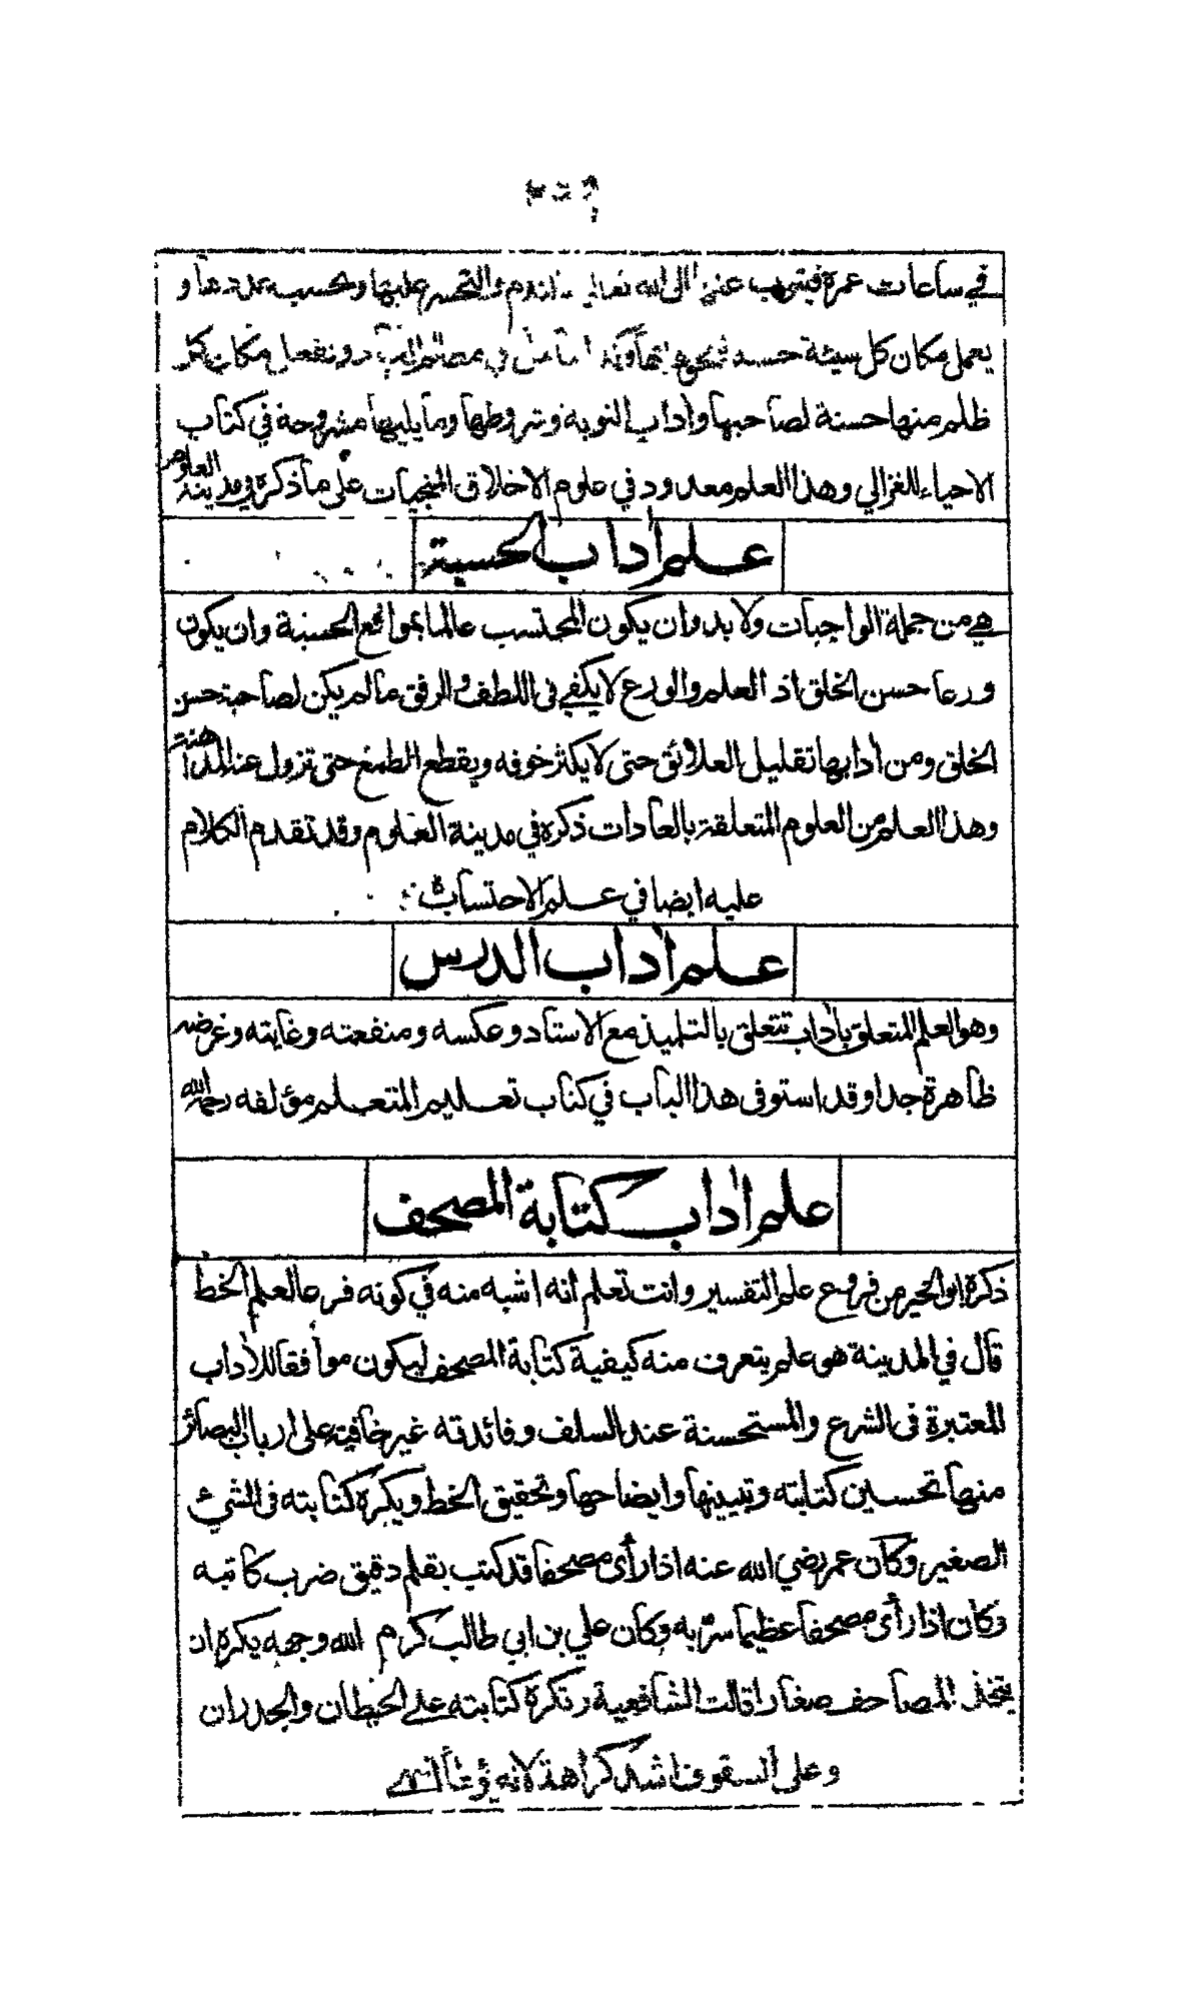 في ساعات عمره فيتوب عنها الى الله تعالى بالندم والتحسر عليها ويحسب عددها و
يعمل مكان كل سيئة حسنة في
ظلم منها حسنة لصاحبها وآداب التوبة وشروطها وما يليها مشروحة في كتاب
الاحياء للغزالي وهذا العلم معدود في علوم الاخلاق المنجيات على ما ذكره في مدينة العلوم
علم آداب الحسبة
هي من جملة الواجبات ولا بد وان يكون المحتسب عالما بمواقع الحسبة وان يكون
ورعا حسن الخلق اذ العلم والورع لا يكفي في اللطف والرفق ما لم يكن لصاحبه حسن
الخلق ومن آدابها تقليل العلائق حتى لا يكثر خوفه ويقطع الطمع حتى تزول عنه المداهنة
وهذا العلم من العلوم المتعلقة بالعادات ذكره في مدينة العلوم وقد تقدم الكلام
عليه ايضا في علم الاحتساب
علم آداب الدرس
وهو العلم المتعلق بآداب تتعلق بالتلميذ مع الاستاد وعكسه ومنفعته وغايته وغرضه
ظاهرة جدا وقد استوفى هذا الباب في كتاب تعليم المتعلم مؤلفه رحمه الله
علم آداب كتابة المصحف
ذكره ابو الخير من فروع علم التفسير وانت تعلم انه اشبه منه في كونه فرعا لعلم الخط
قال في المدينة هو علم يتعرف منه كيفية كتابة المصحف ليكون موافقا للآداب
المعتبرة في الشرع والمستحسنة عند السلف وفائدته غير خافية على ارباب البصائر
منها تحسين كتابته وتبيينها وايضاحها وتحقيق الخط ويكره كتابته في الشيء
الصغير وكان عمر رضي الله عنه اذا رأى مصحفا قد كتب بقلم دقيق ضرب كاتبه
وكان اذا رأى مصحفا عظيما سر به وكان علي بن ابي طالب كرم الله وجهه يكره ان
يتخذ المصاحف صغارا قالت الشافعية وتكره كتابته على الحيطان والجدران
وعلى السقوف اشد كراهة لانه يوطأ انتهى